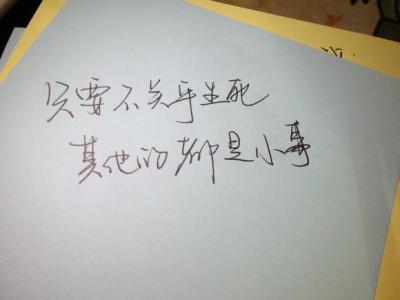 只要不关乎生死
其他的都是小事